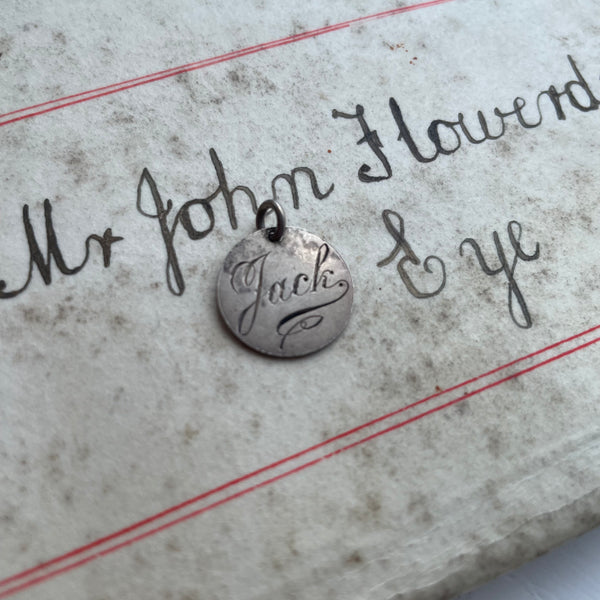 Mr John Flowerd
Eye
Jack